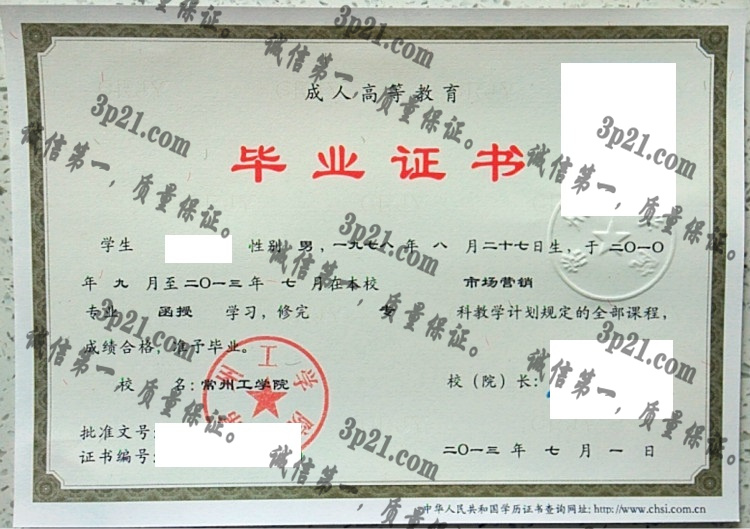 成人高等教育
毕业证书
学生 性别 男,一九七八年 八 月二十七日生,于 二〇一〇
年 九 月至二〇一三年 七 月在本校 市场营销
专业 函授 学习,修完 专 科教学计划规定的全部课程,
成绩合格,准予毕业。
校 名:常州工学院 校(院)长:
批准文号:
证书编号: 二〇一三年 七 月 一 日
中华人民共和国学历证书查询网址: http://www.chsi.com.cn
3p21.com
诚信第一,质量保证。
3p21.com
诚信第一,质量保证。
3p21.com
诚信第一,质量保证。
3p21.com
诚信第一,质量保证。
3p21.com
诚信第一,质量保证。
3p21.com
诚信第一,质量保证。
3p21.com
诚信第一,质量保证。